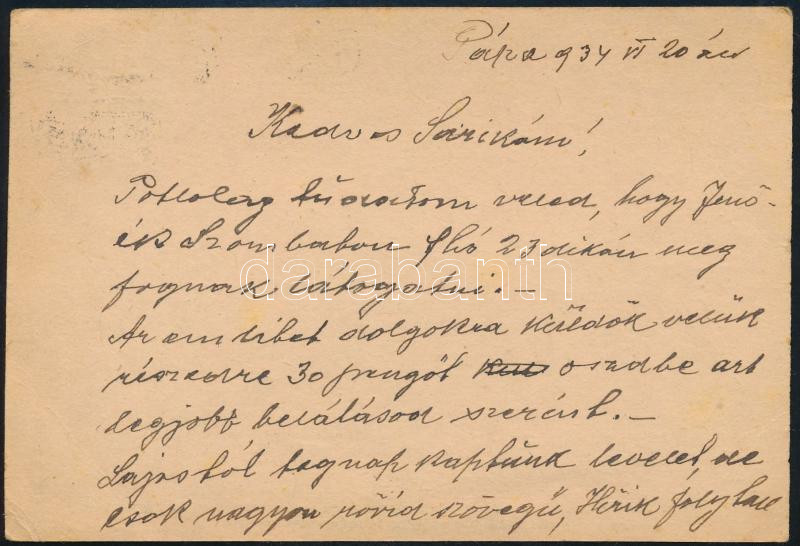 Pápa 934 VI 20 án
Kedves Sárikám!
Pótlolag tudatom veled, hogy Jenő-
ék Szombaton f hó 23 dikán meg
fognak látogatni. –
Az emlitet dolgokra küldök velük
részedre 30 pengőt oszdbe azt
legjobb belátásod szerint. –
Lajostól tegnap kaptunk levelet, de
csak nagyon rövid szövegű,
darabanth.com